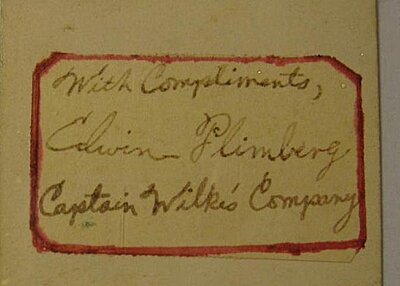 With Compliments,
Edwin Plimberg
Captain Wilkie's Company